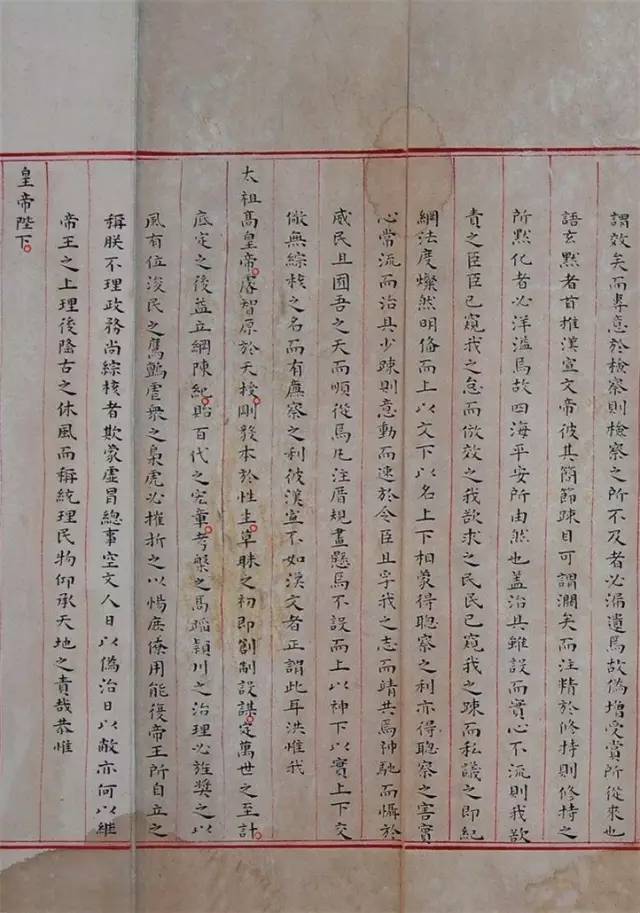 謂效矣而專意於檢察則檢察之所不及者必漏遺焉故偽增受賞所從來也
語玄默者首推漢宣文帝彼其簡節疎目可謂濶矣而注精於修持則修持之
所黙化者必洋溢焉故四海平安所由然也盖治具雖設而實心不流則我欲
責之臣臣已窺我之怠而倣效之我欲求之民民已窺我之疎而私議之即紀
綱法度燦然明俻而上以文下以名上下相蒙得聰察之利亦得聰察之害實
心常流而治具少疎則意動而速於令臣且孚我之志而靖共焉神馳而懾於
威民且囿吾之天而順從焉凡注厝規畫懸焉不設而上以神下以實上下交
儆無綜核之名而有廡察之利彼漢宣不如漢文者正謂此耳洪惟我
太祖髙皇帝睿智原於天授剛毅本於性生草昧之初即創制設謀定萬世之至計
底定之後益立綱陳紀貽百代之宏章考槃之馬蹈頴川之治理必旌奬之以
風有位浚民之鷹鸇虐衆之梟虎必摧折之以惕庶僚用能復帝王所自立之
稱朕不理政務尚綜核者欺蒙虛冒總事空文人日以偽治日以敝亦何以継
帝王之上理後隆古之休風而稱統理民物仰承天地之責哉恭惟
皇帝陛下